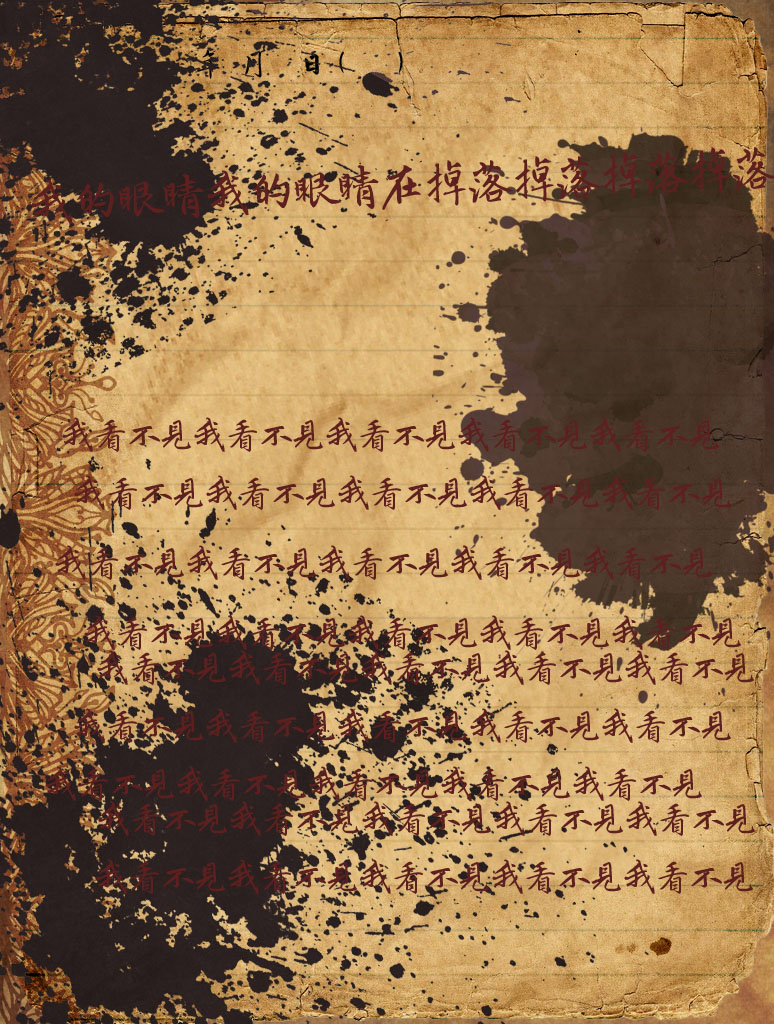 年 月 日( )
我的眼睛我的眼睛在掉落掉落掉落掉落
我看不見我看不見我看不見我看不見我看不見
我看不見我看不見我看不見我看不見我看不見
我看不見我看不見我看不見我看不見我看不見
我看不見我看不見我看不見我看不見我看不見
我看不見我看不見我看不見我看不見我看不見
我看不見我看不見我看不見我看不見我看不見
我看不見我看不見我看不見我看不見我看不見
我看不見我看不見我看不見我看不見我看不見
我看不見我看不見我看不見我看不見我看不見